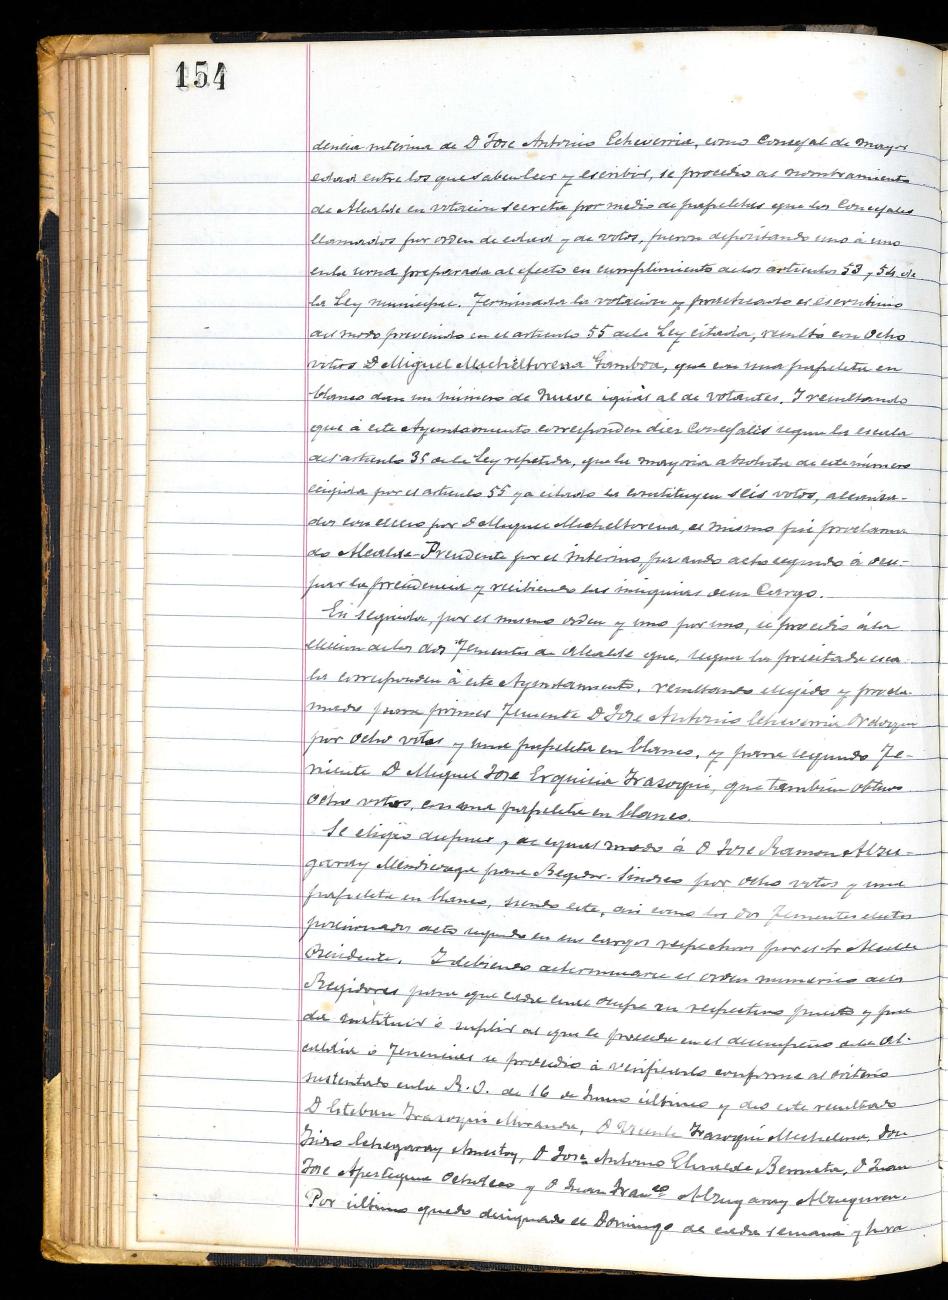 154
dencia interina de D Jose Antonio Echeverria, como Concejal de mayor
edad entre los que saben leer y escribir, se procedio al nombramiento
de Alcalde en votacion secreta por medio de papeletas que los Concejales
llamados por orden de edad y de votos, fueron depositando uno à uno
en la urna preparada al efecto en cumplimiento de los articulos 53 y 54 de
la Ley municipal. Terminada la votacion y practicado el escrutinio
del modo prevenido en el articulo 55 de la Ley citada, resultó con Ocho
votos D Miguel Micheltorena Gamboa, que con una papeleta en
blanco dan un número de Nueve igual al de votantes. Y resultando
que à este Ayuntamiento corresponden diez Concejales segun la escala
del articulo 35 de la Ley repetida, que la mayoria absoluta de este número
exigida por el articulo 55 ya citado la constituyen seis votos, alcanza-
dos con exceso por D Miguel Micheltorena, el mismo fué proclama
do Alcalde-Presidente por el interino, pasando acto segundo à ocu-
par la presidencia y recibiendo las insignias de su Cargo.
En seguida, por el mismo orden y uno por uno, se procedio à la
eleccion de los dos Tenientes de Alcalde que, segun la precitada esca
la corresponden à este Ayuntamiento, resultando elejido y procla-
mado para primer Teniente D Jose Antonio Echeverria Ordoqui
por ocho votos y una papeleta en blanco, y para segundo Te-
niente D Miguel Jose Erquicia Irazoqui, que tambien obtuvo
Ocho votos, con una papeleta en blanco.
Se eligio despues, de igual modo à D Jose Ramon Alzu-
garay Mendiraga para Regidor-Sindico por ocho votos y una
papeleta en blanco, siendo este, asi como los dos Tenientes electos
posesionados acto segundo en sus cargos respectivos por el Sr Alcalde
Presidente. Y debiendo determinarse el orden numerico de los
Regidores para que cada cual ocupe su respectivo puesto y pue
da sustituir ó suplir al que le precede en el desempeño de la Al-
caldia ó Tenencias se procedio à verificarlo conforme al criterio
sustentado en la R. O. de 16 de Junio último y dio este resultado
D Esteban Irazoqui Miranda, D Vicente Irazoqui Michelena, Don
Isidro Echegaray Amestoy, D Jose Antonio Elizalde Berrueta, D Juan
Jose Apesteguia Ochoteco y D Juan Franco Alzugaray Alzuguren.
Por último quedo designado el Domingo de cada semana y hora